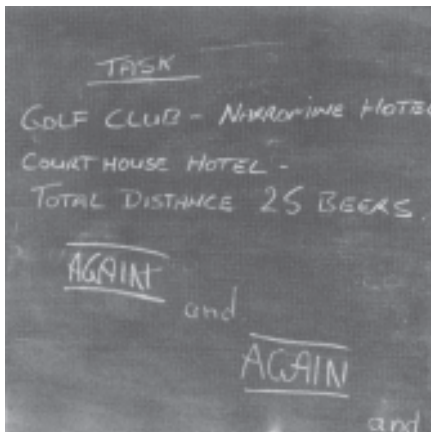 TASK
GOLF CLUB - NARROMINE HOTEL
COURT HOUSE HOTEL -
TOTAL DISTANCE 25 BEERS.
AGAIN
and
AGAIN
and